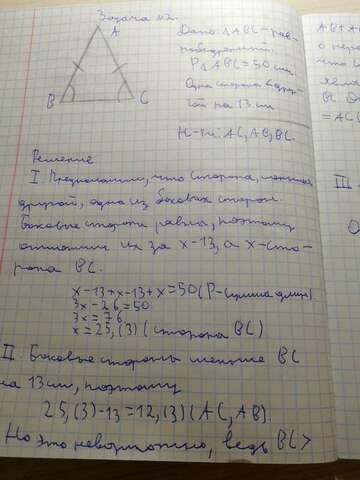 Задача №2.
A
B
C
Дано: △ABC – рав-
нобедренный.
P△ABC = 50 см
Одна сторона < друг-
ой на 13 см
Н-ти: AC, AB, BC.
Решение
I. Предположим, что сторона, меньшая
другой, одна из боковых сторон.
Боковые стороны равны, поэтому
их за x-13, а x-сто-
рона BC.
x-13+x-13+x=50 (P-сумма длин)
3x-26=50
3x=76
x=25,(3) (сторона BC)
II. Боковые стороны меньше BC
на 13 см, поэтому
25,(3)-13=12,(3) (AC, AB).
Но это невозможно, ведь BC>
AB+A
о нера
что
= AC
III